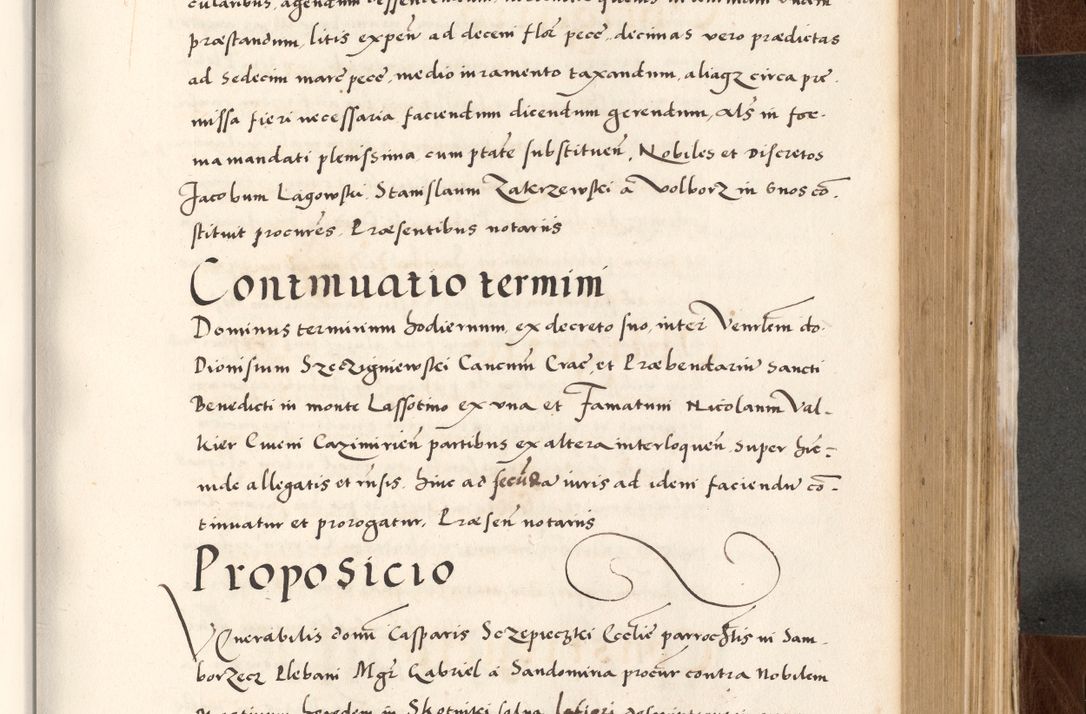 præstandum, litis expeñ ad decem flor pecē, decimas vero prædictas
ad sedecim marc pecē, medio iuramento taxandum, aliaqz circa præ-
missa fieri necessaria faciendum dicendum gerendum, als in for-
ma mandati plenissima, cum ptate substitueñ, Nobiles et Discretos
Jacobum Lagowski, Stanislaum Zakrzewski a Volborz in Gnos cō-
stituit procures. Præsentibus notariis
Continuatio termini
Dominus terminum hodiernum, ex decreto suo, inter Venrlem do.
Dionisium Szeczigniewski Cancnm Crac, et Præbendariu Sancti
Benedicti in monte Lassotino ex vna et Famatum Nicolaum Val-
kier Civem Cazimirieñ partibus ex altera interloqueñ super hic
inde allegatis et rnsis. hinc ad secuda iuris ad idem faciendu cō-
tinuatur et prorogatur. Præseñ notariis
Proposicio
Venerabilis domi Casparis Sczepieczki Ecclie parrochlis in Sam-
borzecz Plebani Mgr Gabriel a Sandomiria procur contra Nobilem